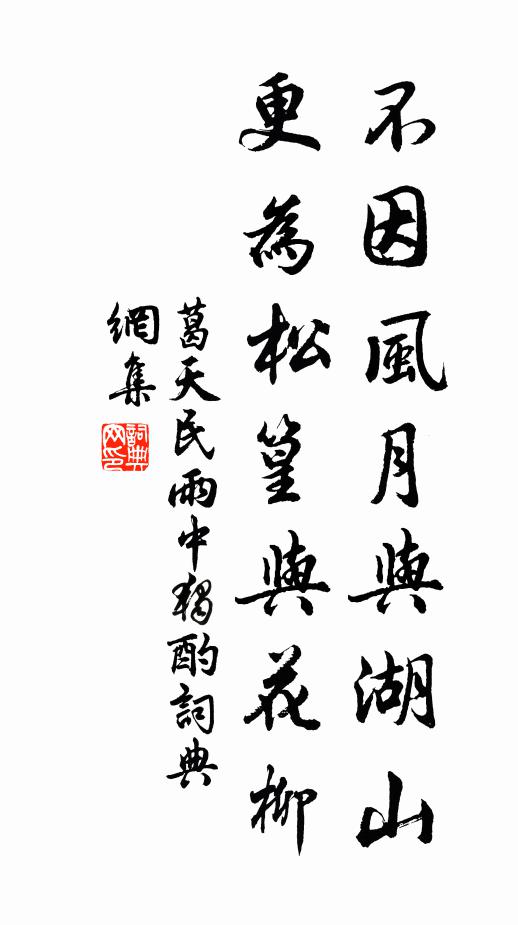 不因風月與湖山
更為松篁與花柳
葛天民雨中獨酌詞典
網集
詞典網印